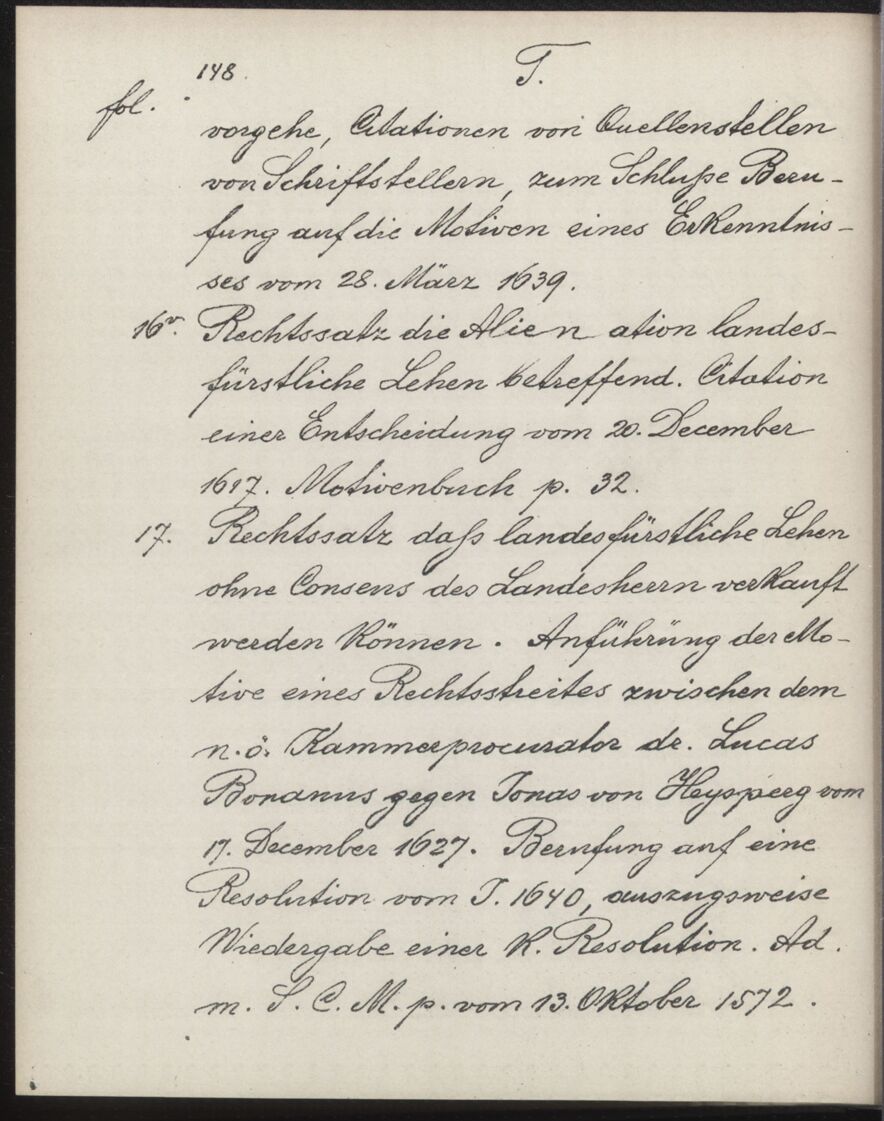 148. T.
fol.
vorgehe, Citationen von Quellenstellen
von Schriftstellern, zum Schluße Beru-
fung auf die Motiven eines Erkenntnis-
ses vom 28. März 1639.
16v. Rechtssatz die Alienation landes-
fürstliche Lehen betreffend. Citation
einer Entscheidung vom 20. December
1617. Motivenbuch p. 32.
17. Rechtssatz daß landesfürstliche Lehen
ohne Consens des Landesherrn verkauft
werden können. Anführung der Mo-
tive eines Rechtsstreites zwischen dem
n. ö. Kammerprocurator dr. Lucas
Bonanus gegen Jonas von Heysperg vom
17. December 1627. Berufung auf eine
Resolution vom J. 1640, auszugsweise
Wiedergabe einer K. Resolution. Ad.
m. S. C. M. p. vom 13. Oktober 1572.